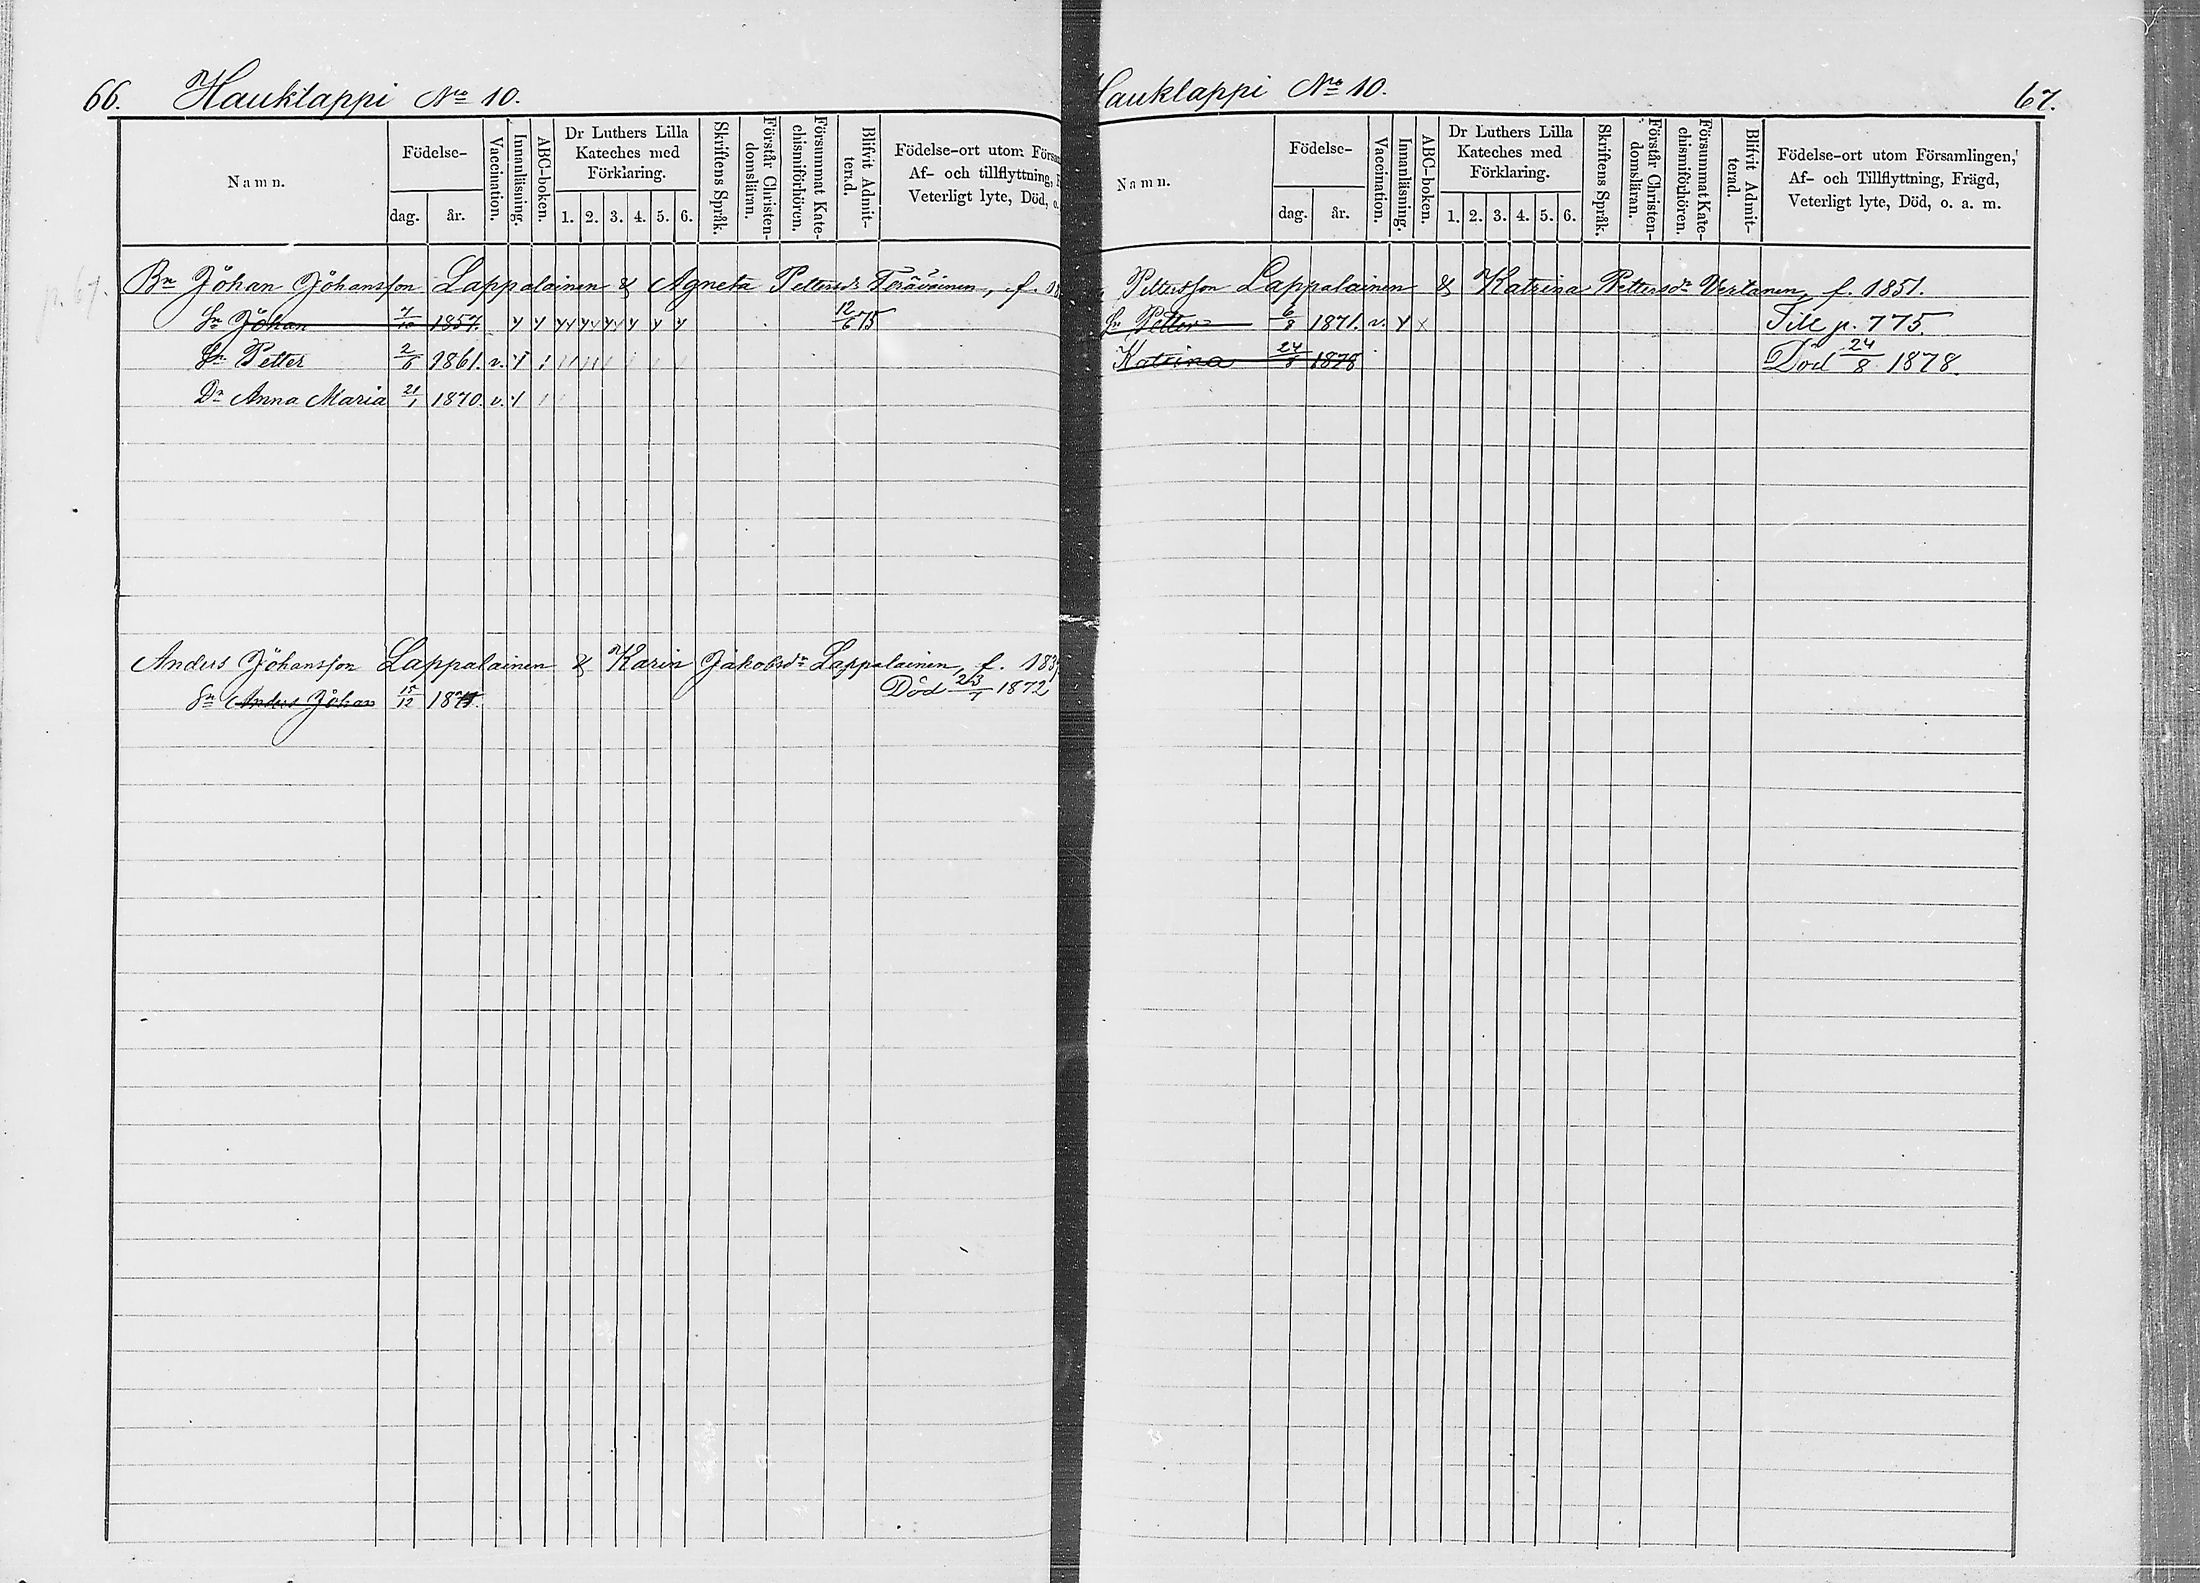 66. Hauklappi No 10.
Namn.
Födelse-
dag. år.
Vaccination.
Innanläsning.
ABC-boken.
Dr Luthers Lilla
Kateches med
Förklaring.
1. 2. 3. 4. 5. 6.
Skriftens Språk.
Förstår Christen-
domsläran.
Försummat Kate-
chismiförhören.
Blifvit Admit-
terad.
Födelse-ort utom Församl
Af- och tillflyttning,
Veterligt lyte, Död, o.
p. 67.
Bn Johan Johansson Lappalainen & Agneta Pettersdr Teräväinen, f. 18
Sn Johan 7/10 1857. 12/6 75
Sn Petter 2/6 1861. v.
Dr Anna Maria 21/1 1870. v.
Anders Johansson Lappalainen & Karin Jakobsdr Lappalainen, f. 183
Sn Anders Johan 15/12 1871. Död 23/7 1872
auklappi No 10. 67.
Namn.
Födelse-
dag. år.
Vaccination.
Innanläsning.
ABC-boken.
Dr Luthers Lilla
Kateches med
Förklaring.
1. 2. 3. 4. 5. 6.
Skriftens Språk.
Förstår Christen-
domsläran.
Försummat Kate-
chismiförhören.
Blifvit Admit-
terad.
Födelse-ort utom Församlingen,
Af- och Tillflyttning, Frägd,
Veterligt lyte, Död, o. a. m.
Pettersson Lappalainen & Katrina Pettersdr Vertanen, f. 1851.
Sn Petter 6/8 1871. v. Till p. 775.
Katrina 24/8 1878 Död 24/8 1878.